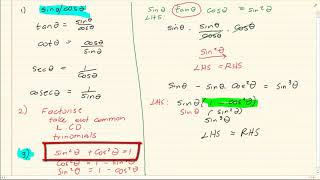 1) sinθ/cosθ
tanθ = sinθ/cosθ
cotθ = cosθ/sinθ
secθ = 1/cosθ
cosecθ = 1/sinθ
2) Factorise
take out common
L.CD
trinomials
3) sin²θ + cos²θ = 1
cos²θ = 1 - sin²θ
sin²θ = 1 - cos²θ
sinθ tanθ cosθ
LHS: sinθ · sinθ/cosθ · cosθ
sin²θ
LHS = RHS
sinθ - sinθ cos²θ = sin³θ
LHS: sinθ (1 - cos²θ)
sinθ (sin²θ)
LHS = RHS